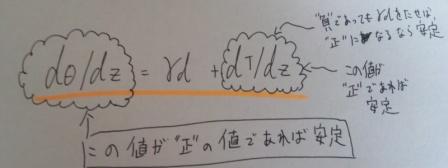 "負"であってもγdをたせば、
"正"になるなら安定
dθ/dz = γd + dT/dz
この値が
"正"であれば
安定
この値が"正"の値であれば安定